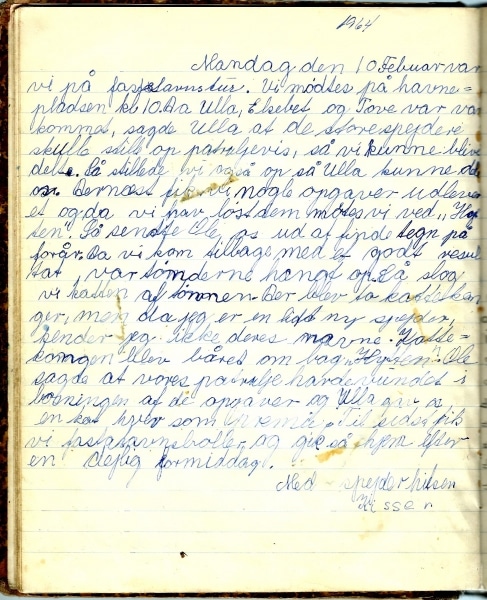 1964
Mandag den 10 Febuar var
vi på fastelavnstur. Vi mødtes på havne=
pladsen kl 10. Da Ulla, Elsebet og Tove var var
kommet, sagde Ulla at de store spejdere
skulle stille op patruljevis, så vi kunne blive
delt. Så stillede vi også op så Ulla kunne dele
os. Dernæst fik vi nogle opgaver udlever
et og da vi hav løst dem mødtes vi ved "Hyt
ten". Så sendte Ole os ud at finde tegn på
forår. Da vi kom tilbage med et godt resul
tat var tønderne hængt op. Så slog
vi katten af tønnen. Der blev to kattekon
ger, men da jeg er en lidt ny spejder,
kender jeg ikke deres navne. Katte=
kongen blev båret om bag "Hytten". Ole
sagde at vores patrulje havde vundet i
løsningen af de opgaver og Ulla gav os
en kat hver som præmie. Til sidst fik
vi fastelavnsboller, og gik så hjem efter
en dejlig formiddag.
Med spejderhilsen